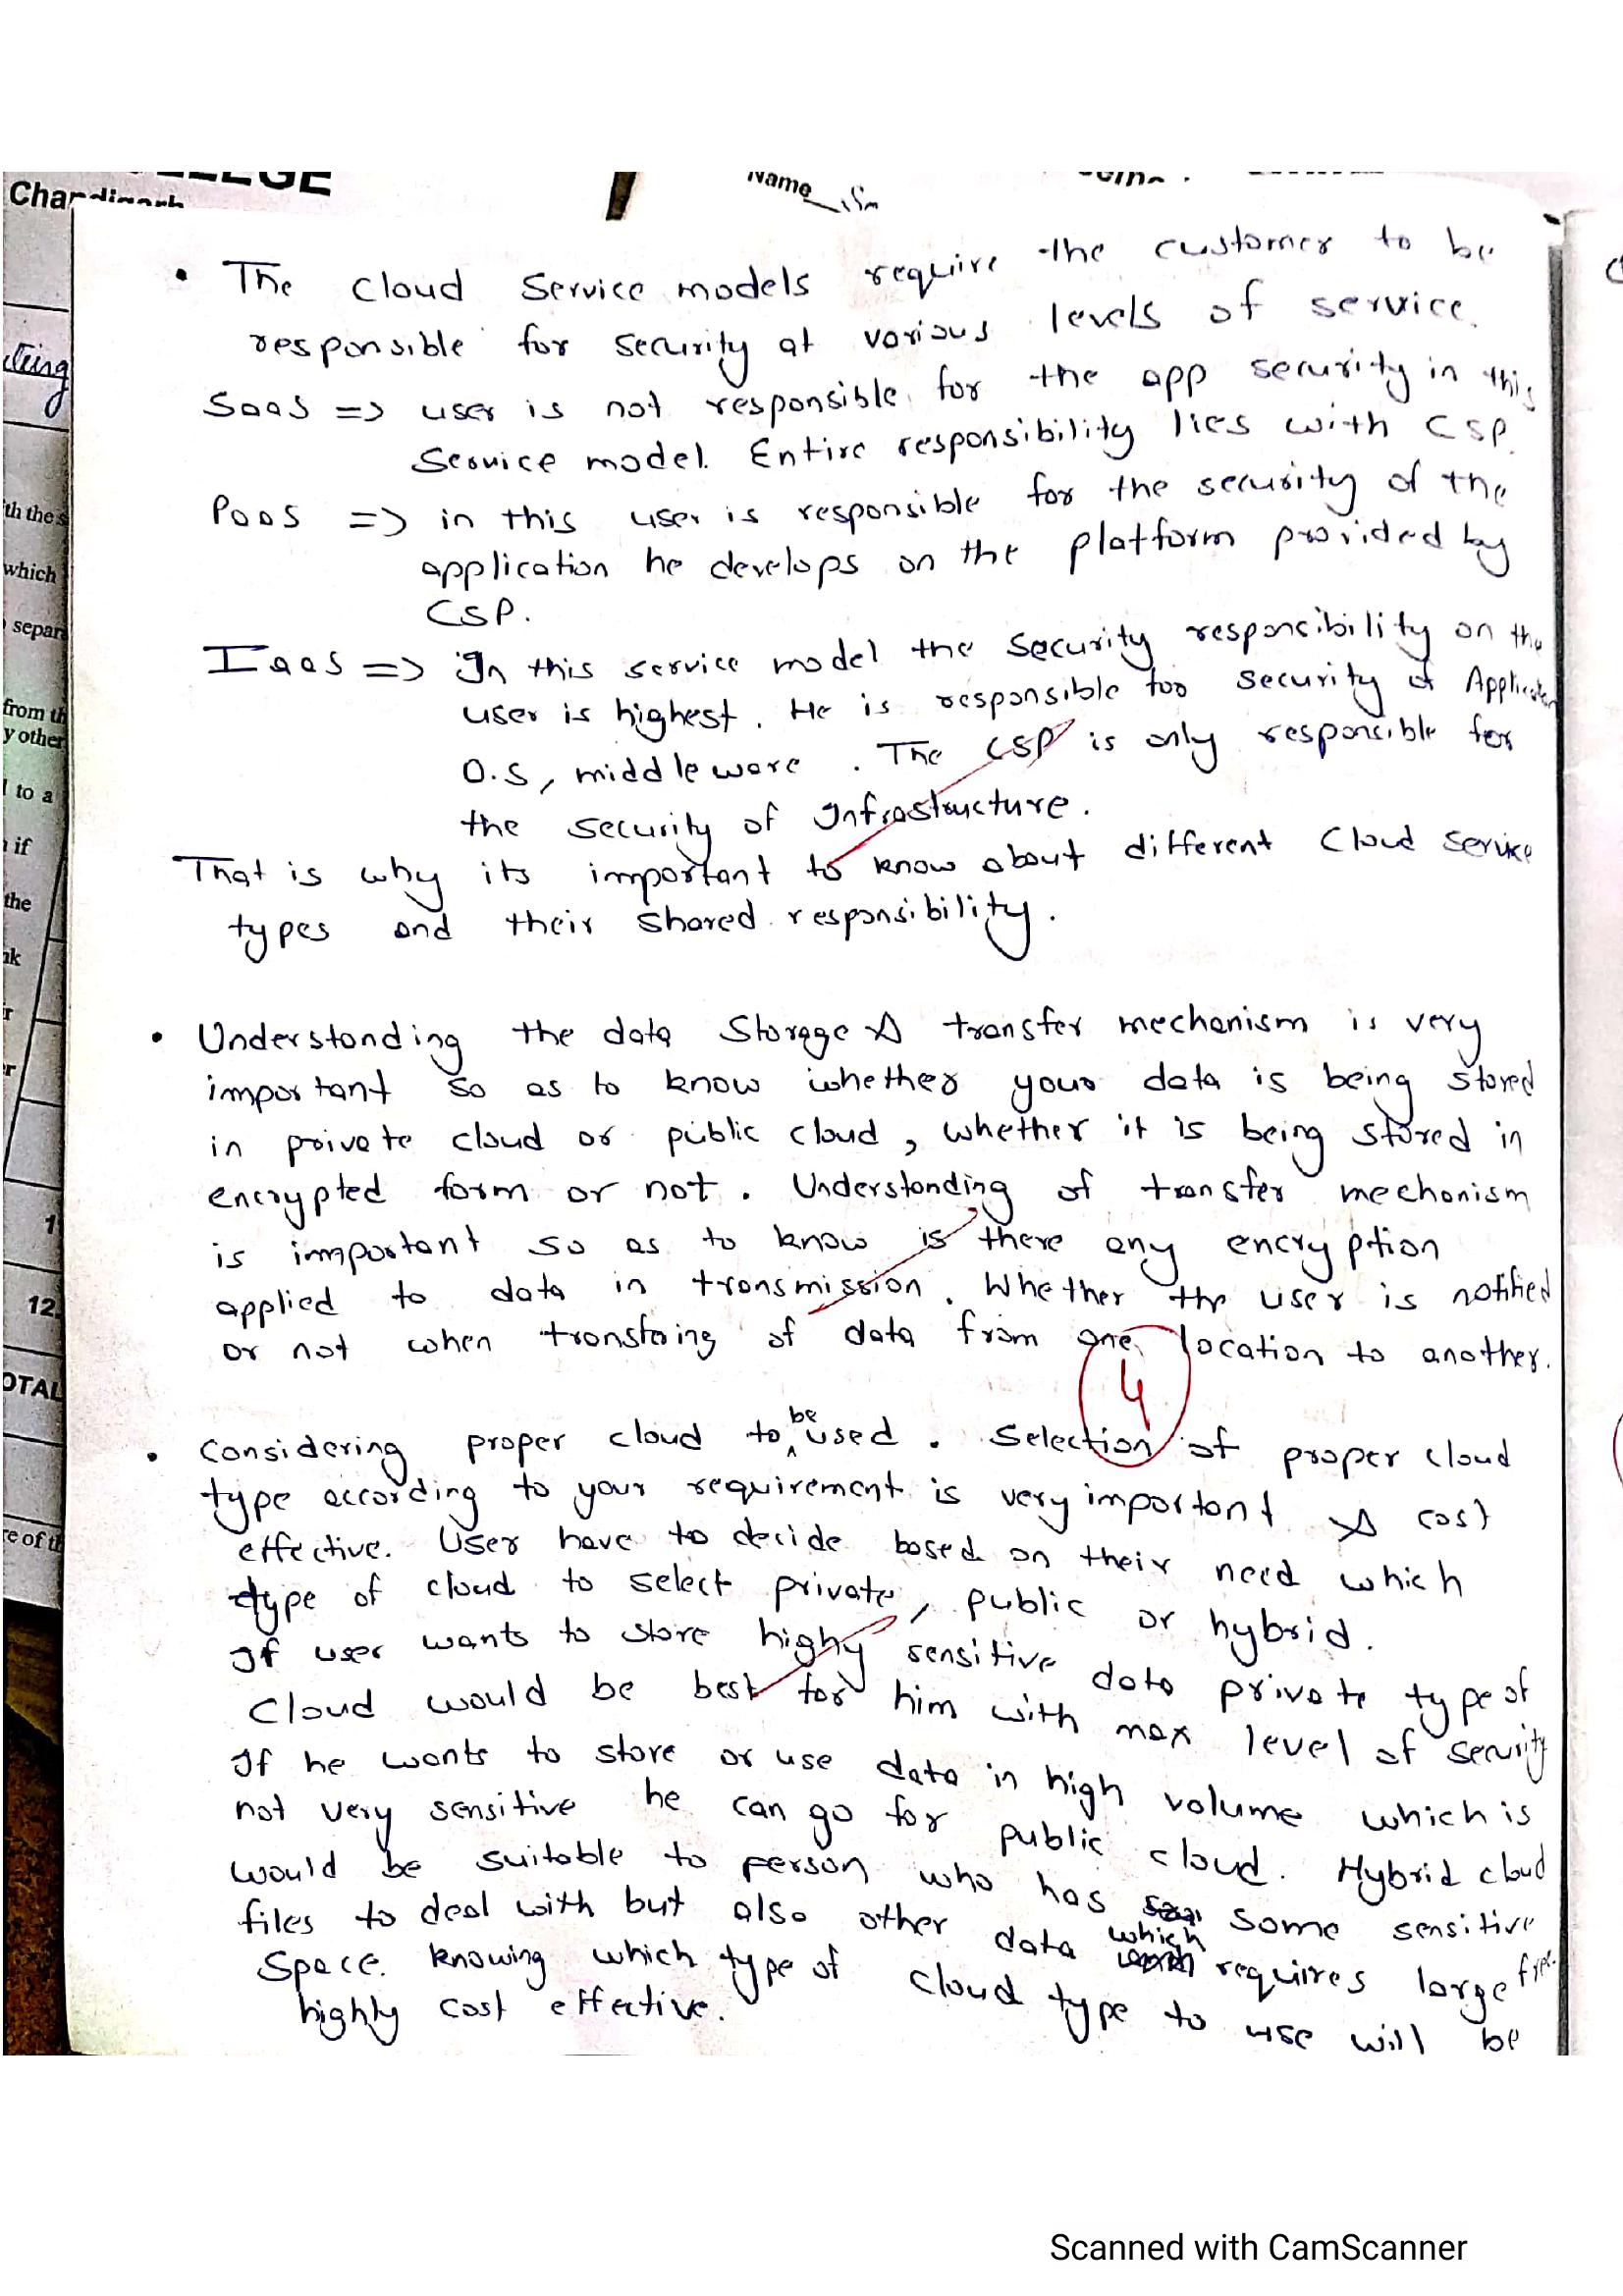 LLEGE
Chandigarh
Name
• The cloud Service models require the customer to be
responsible for security at various levels of service.
SaaS => user is not responsible for the app security in this
Service model. Entire responsibility lies with CSP.
PaaS => in this user is responsible for the security of the
application he develops on the platform provided by
CSP.
IaaS => In this service model the security responsibility on the
user is highest. He is responsible for security of Application
O.S, middleware . The CSP is only responsible for
the security of Infrastructure.
That is why its important to know about different Cloud Service
types and their shared responsibility.
• Understanding the data Storage & transfer mechanism is very
important so as to know whether your data is being stored
in private cloud or public cloud, whether it is being stored in
encrypted form or not. Understanding of transfer mechanism
is important so as to know is there any encryption
applied to data in transmission. Whether the user is notified
or not when transfering of data from one location to another.
4
• Considering proper cloud to be used. Selection of proper cloud
type according to your requirement is very important & cost
effective. User have to decide based on their need which
type of cloud to select private, public or hybrid.
If user wants to store highy sensitive data private type of
Cloud would be best for him with max level of security
If he wants to store or use data in high volume which is
not very sensitive he can go for public cloud. Hybrid cloud
would be suitable to person who has some sensitive
files to deal with but also other data which requires large
Space. knowing which type of cloud type to use will be
highly cost effective.
th the
which
separ
from th
y other
l to a
if
the
nk
r
er
1
12
OTAL
re of th
Scanned with CamScanner